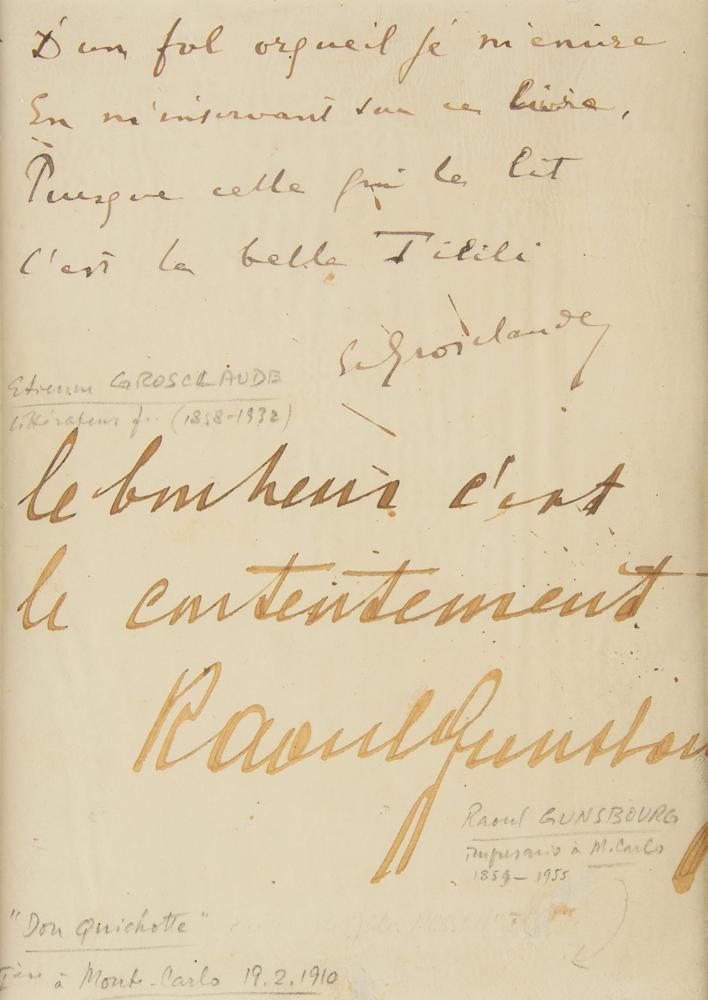 D'un fol orgueil je m'enivre
En m'inscrivant sur ce livre,
Puisque celle qui le lit
C'est la belle Tilili
G. Grosclaude
Etienne GROSCLAUDE
littérateur fr. (1858-1932)
le bonheur c'est
le contentement
Raoul Gunsbourg
Raoul GUNSBOURG
impresario à M. Carlo
1859-1955
"Don Quichotte"
à Monte-Carlo 19.2.1910